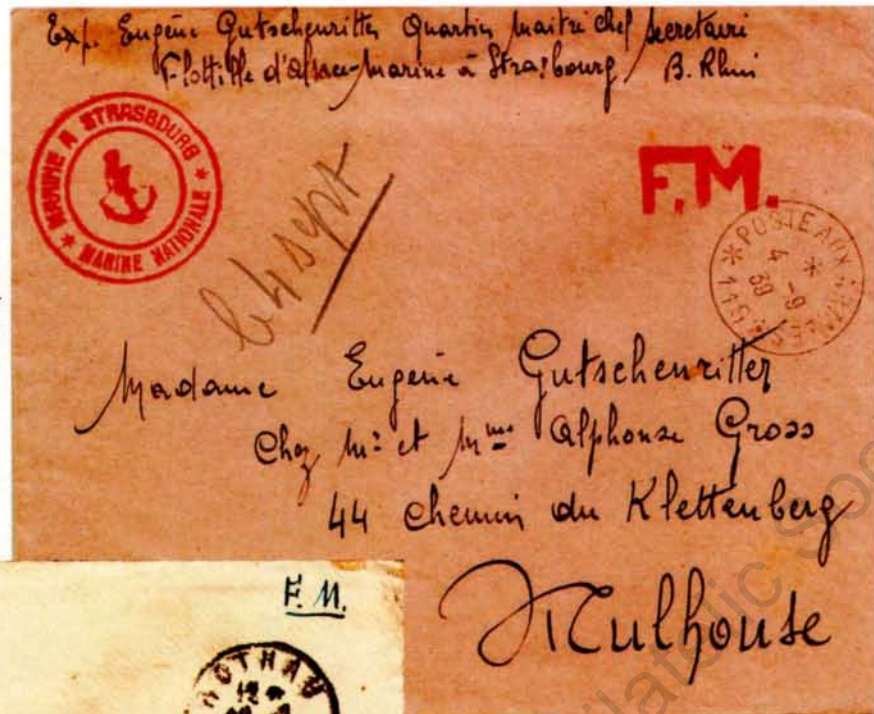 Exp. Eugène Gutschenritter Quartier maitre chef secretaire
Flottille d'Alsace-Marine à Strasbourg B. Rhin
MARINE A STRASBOURG
* MARINE NATIONALE *
F.M.
le 4 sept
* POSTE AUX ARMEES *
4 -9
39
Madame Eugène Gutschenritter
Chez Mr et Mme Alphonse Gross
44 Chemin du Klettenberg
Mulhouse
F.M.
ROTHAU
12
Philatelic Soc